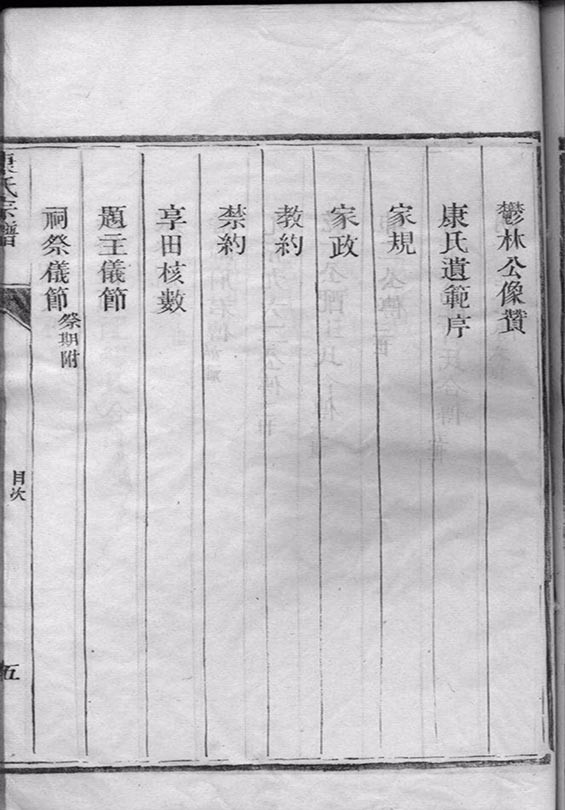 鬱林公像贊
康氏遺範序
家規
家政
教約
禁約
享田核數
題主儀節
祠祭儀節 祭期附
康氏宗譜
目次
五